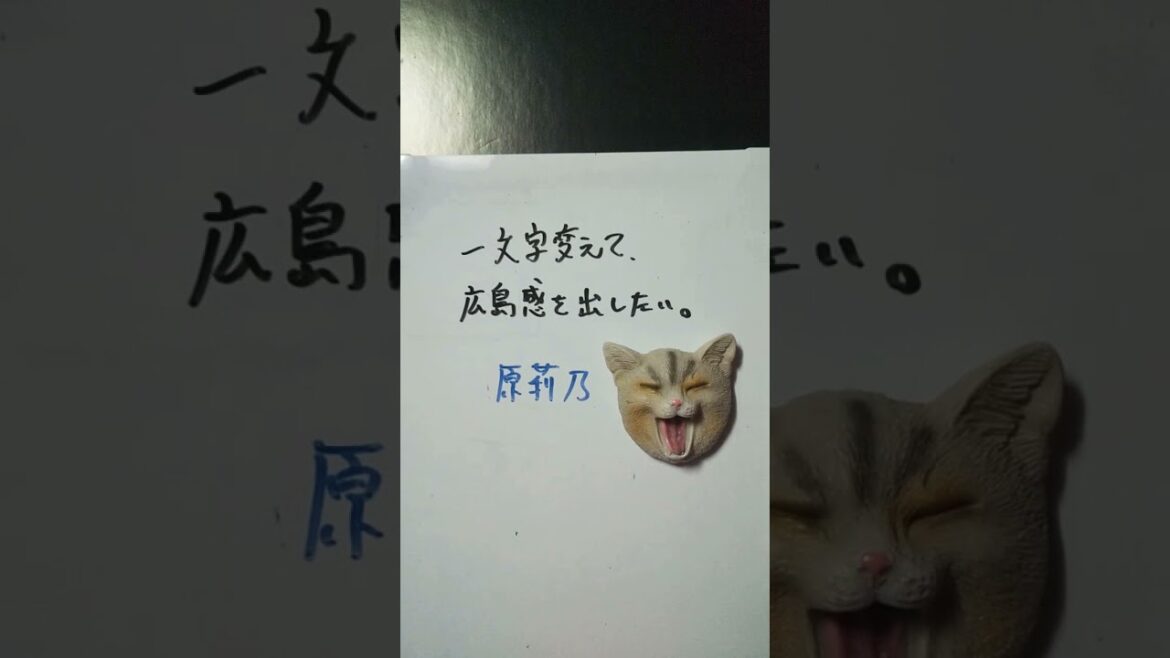 一文字変えて、
広島感を出したい。
原莉乃